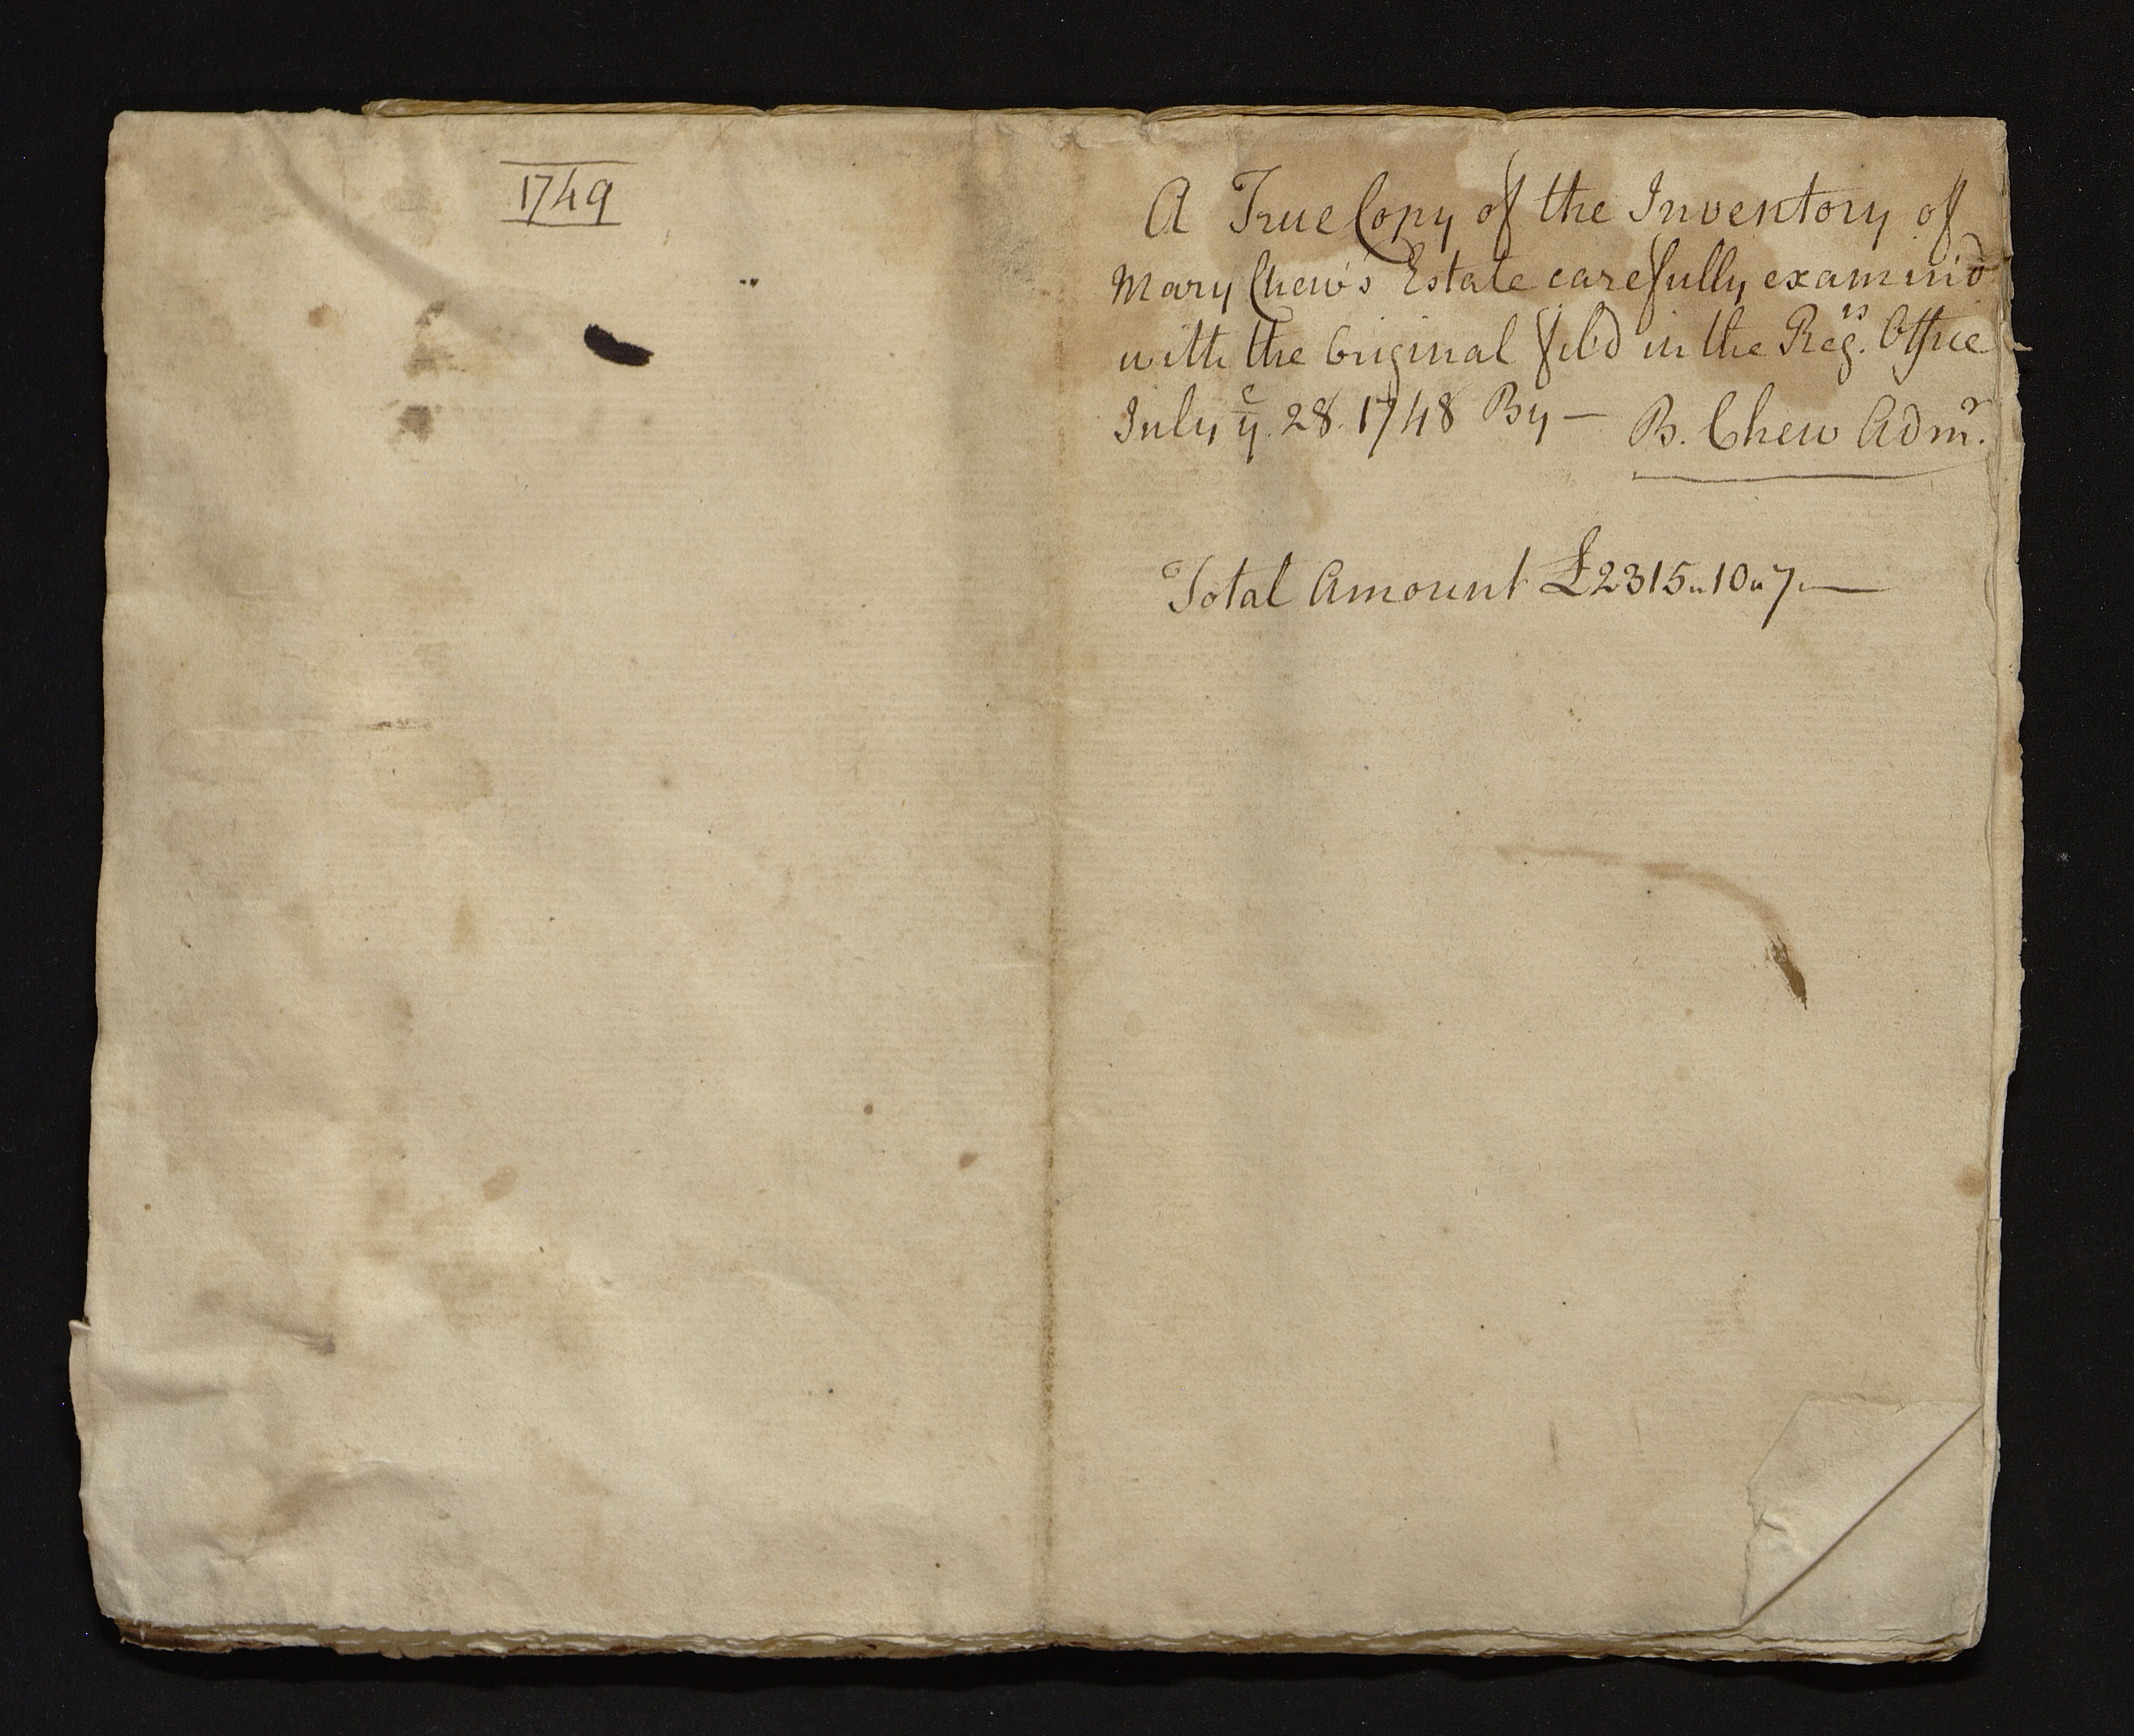 1749
A True Copy of the Inventory of
Mary Chew's Estate carefully examin'd
with the Original fil'd in the Regrs. Office
July ye. 28. 1748 By — B. Chew Admr.
Total Amount £2315„10„7.—